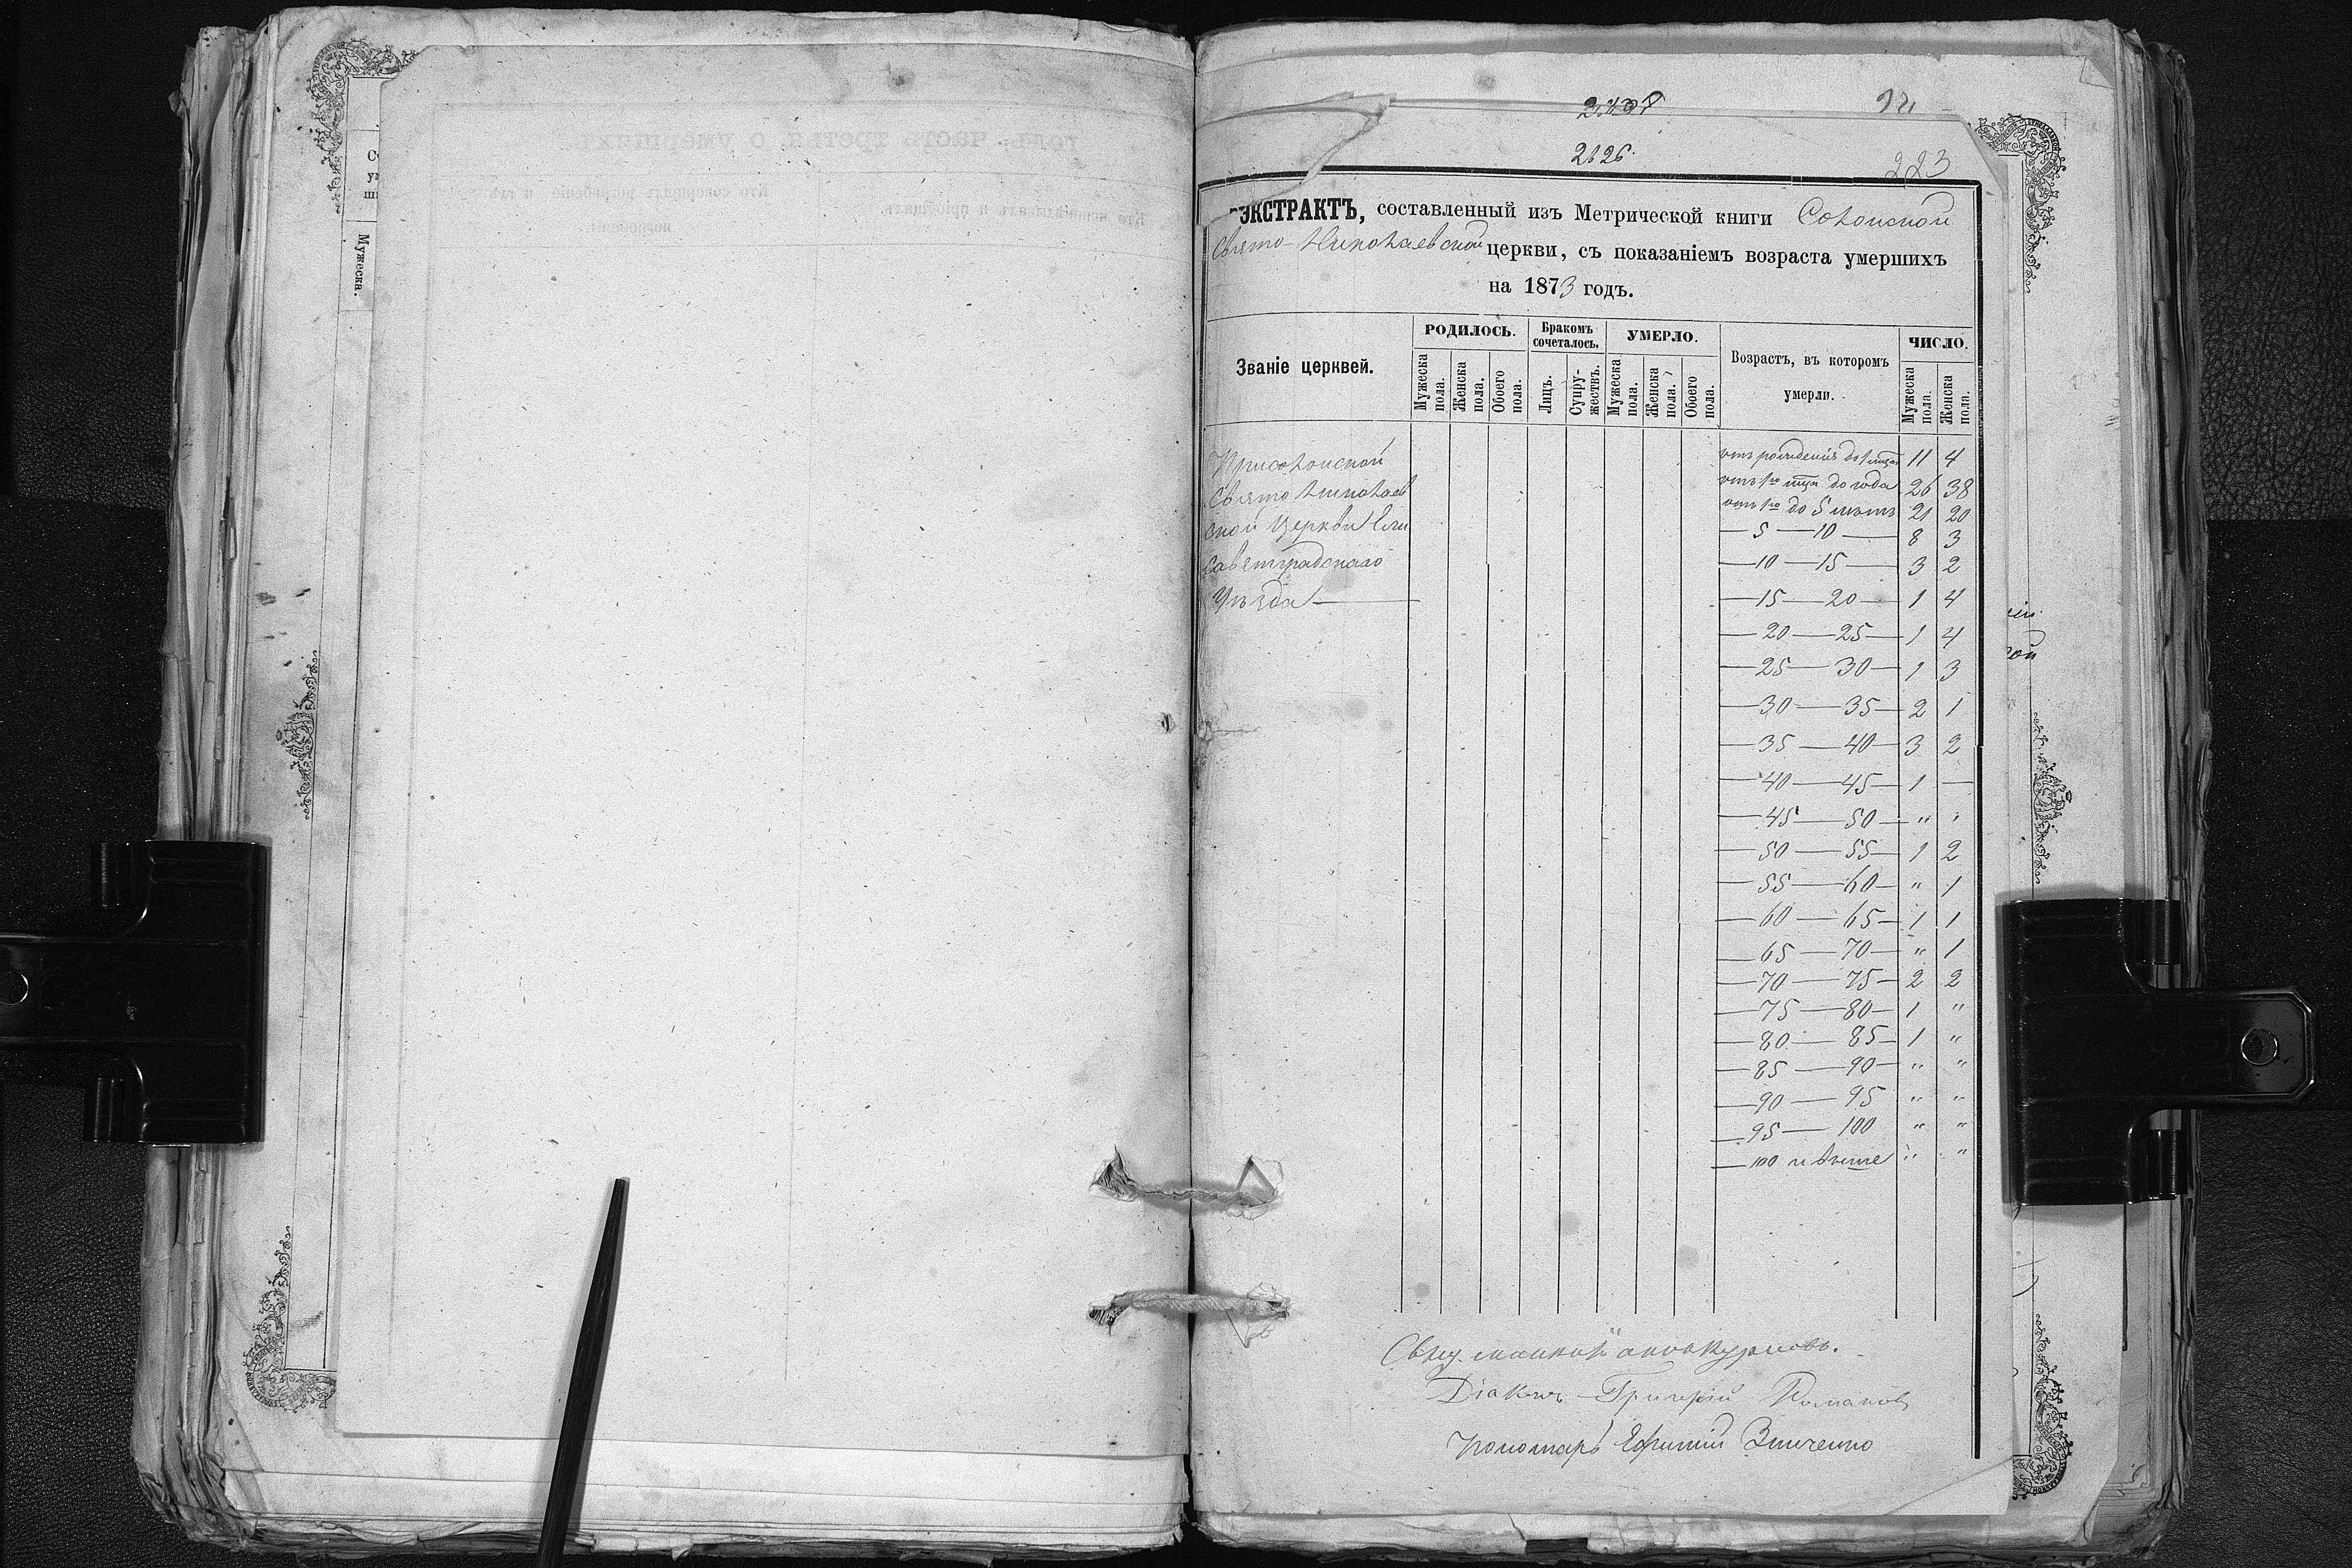 2126.
223
ЭКСТРАКТЪ, составленный изъ Метрической книги Соконской
Свято-Николаевской церкви, съ показаніемъ возраста умершихъ
на 1873 годъ.
Званіе церквей.
РОДИЛОСЬ.
Мужеска пола.
Женска пола.
Обоего пола.
Бракомъ сочеталось.
Лицъ.
Супружествъ.
УМЕРЛО.
Мужеска пола.
Женска пола.
Обоего пола.
Возрастъ, въ которомъ умерли.
ЧИСЛО.
Мужеска пола.
Женска пола.
Свято Николаев
ской Церкви Ели
саветградскаго
Уѣзда —
отъ рожденія до 1 мѣсяца 11 4
отъ 1го мѣсяца до года 26 38
отъ 1го до 5 лѣтъ 21 20
— 5 — 10 — 8 3
— 10 — 15 — 3 2
— 15 — 20 — 1 4
— 20 — 25 — 1 4
— 25 — 30 — 1 3
— 30 — 35 — 2 1
— 35 — 40 — 3 2
— 40 — 45 — 1 —
— 45 — 50 — " "
— 50 — 55 — 1 2
— 55 — 60 — " 1
— 60 — 65 — 1 1
— 65 — 70 — " 1
— 70 — 75 — 2 2
— 75 — 80 — 1 "
— 80 — 85 — 1 "
— 85 — 90 — " "
— 90 — 95 " "
— 95 — 100 " "
— 100 и выше " "
Діаконъ Григорій Романов
Пономарь Ефимій Зинченко
Мужеска.